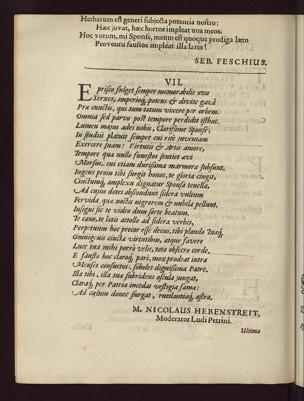 Herbarum est generi subjecta potentia nostro:
Hæc juvat, hæc hortos impleat una meos.
Hoc votum, mi Sponse, meum est quoque prodiga læto
Proventu faustos impleat illa lares!
SEB. FESCHIUS.
VII.
E prisco fulget semper memorabilis ævo
Xerxes, imperioq; potens & divite gazâ
Præ cunctis, qui tum vivere per orbem.
Omnia sed parvo post tempore perdidit isthæc.
Lumen majus ades nobis, Clarissime Sponse;
In studiis placuit semper cui ritè juventam
Exercere suam: Virtutis & Artis amore,
Tempore qua nullo funestos sentiet ævi
Morsus, cui etiam durissima marmora subsunt.
Ingens proin tibi surgit honos, te gloria cingit,
Cinctumq; amplexu dignatur Sponsa tenella,
Ad cujus dotes abscondunt sidera vultum
Fervida quæ noctu nigrorem & nubola pellunt.
Insigni sic te video dum sorte beatum.
Te cano, te lætis attollo ad sidera verbis,
Perpetuum hoc precor esse decus, tibi plando
Omnigenis cincta virtutibus, atque favere
Luce tua mihi porrò velis, toto obsecro corde.
E fausto hoc claroq; pari, mox prodeat intra
Menses consuetos, soboles dignissima Patre.
Illa tibi, illa tuæ subridens oscula jungat,
Claraq; per Patria incedat vestigia fama:
Ad cœlum donec surgat, rutilantiaq; astra.
M. NICOLAUS HEBENSTREIT,
Moderator Ludi Petrini.
Ultima